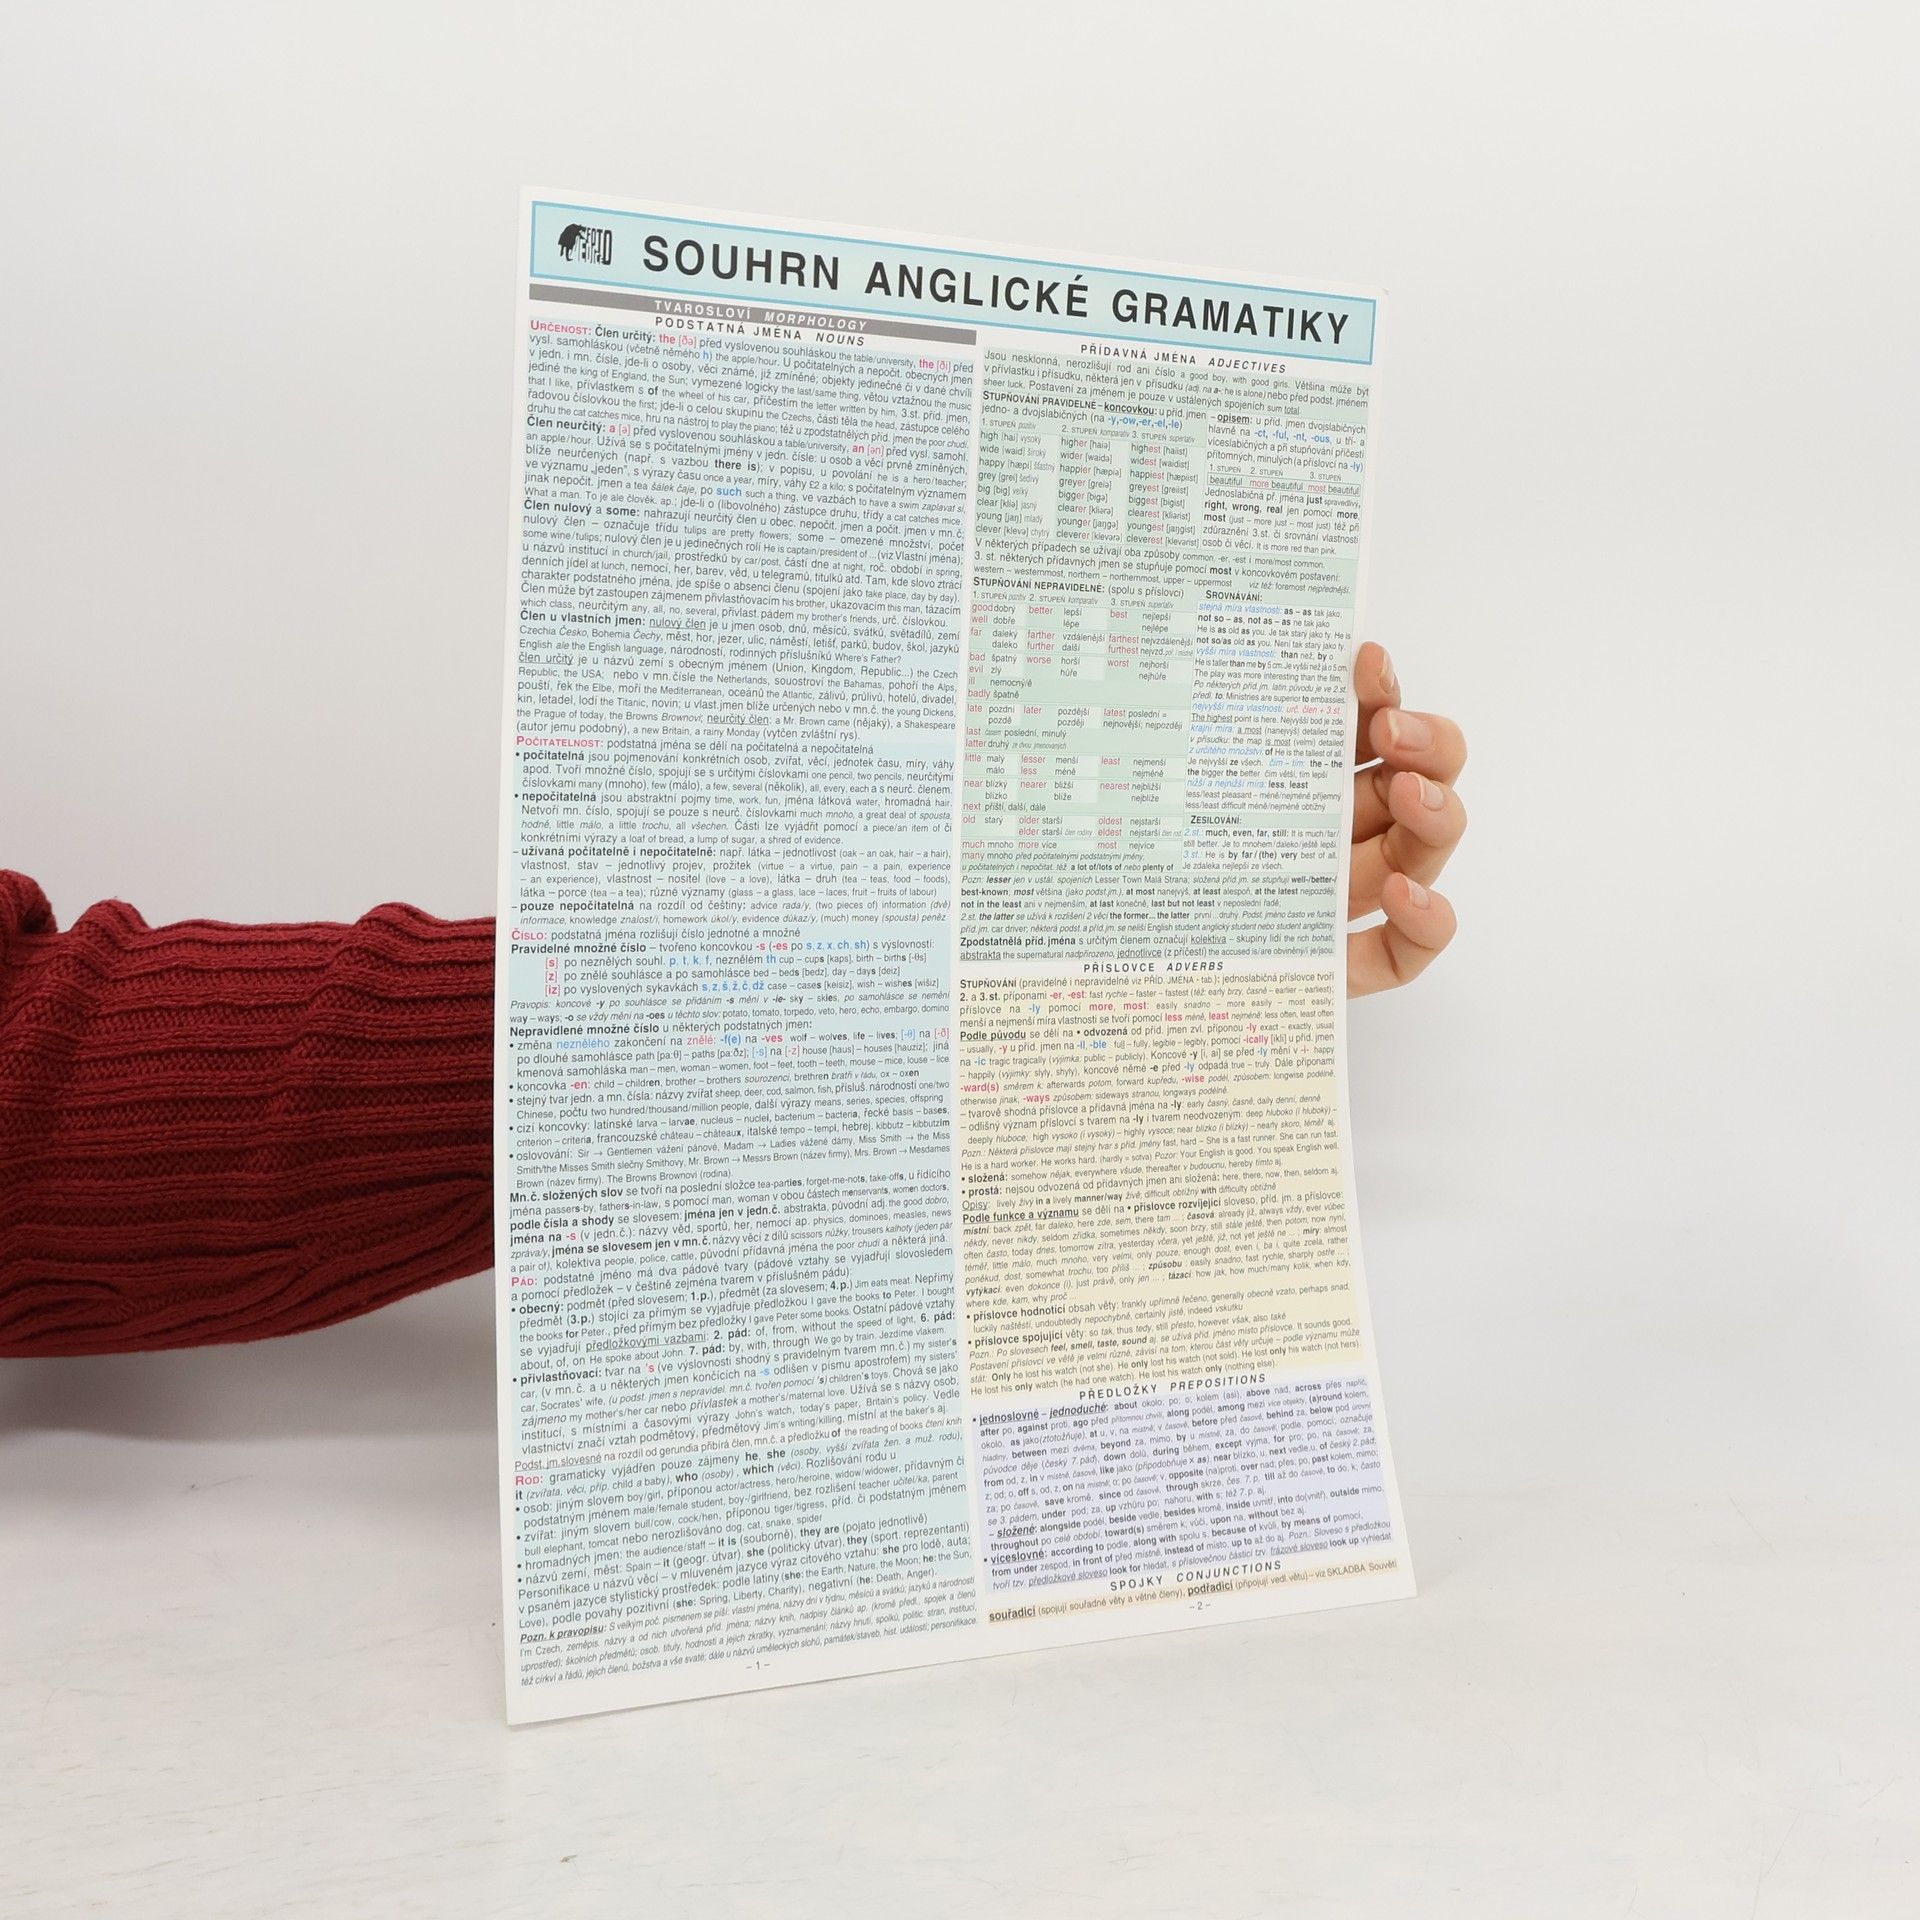 SOUHRN ANGLICKÉ GRAMATIKY
TVAROSLOVÍ MORPHOLOGY
PODSTATNÁ JMÉNA NOUNS
URČENOST: Člen určitý: the [ðə] před vyslovenou souhláskou the table/university, the [ði] před
vysl. samohláskou (včetně němého h) the apple/hour. U počitatelných a nepočit. obecných jmen
v jedn. i mn. čísle, jde-li o osoby, věci známé, již zmíněné; objekty jedinečné či v dané chvíli
jediné the king of England, the Sun; vymezené logicky the last/same thing, větou vztažnou the music
that I like, přívlastkem s of the wheel of his car, příčestím the letter written by him, 3.st. příd. jmen,
řadovou číslovkou the first; jde-li o celou skupinu the Czechs, části těla the head, zástupce celého
druhu the cat catches mice, hru na nástroj to play the piano; též u zpodstatnělých příd. jmen the poor chudí.
Člen neurčitý: a [ə] před vyslovenou souhláskou a table/university, an [ən] před vysl. samohl.
an apple/hour. Užívá se s počitatelnými jmény v jedn. čísle: u osob a věcí prvně zmíněných,
blíže neurčených (např. s vazbou there is); v popisu, u povolání he is a hero/teacher;
ve významu „jeden", s výrazy času once a year, míry, váhy £2 a kilo; s počitatelným významem
jinak nepočit. jmen a tea šálek čaje, po such such a thing, ve vazbách to have a swim zaplavat si,
What a man. To je ale člověk. ap.; jde-li o (libovolného) zástupce druhu, třídy a cat catches mice.
Člen nulový a some: nahrazují neurčitý člen u obec. nepočit. jmen a počit. jmen v mn.č;
nulový člen – označuje třídu tulips are pretty flowers; some – omezené množství, počet
some wine/tulips; nulový člen je u jedinečných rolí He is captain/president of ...(viz Vlastní jména);
u názvů institucí in church/jail, prostředků by car/post, částí dne at night, roč. období in spring,
denních jídel at lunch, nemocí, her, barev, věd, u telegramů, titulků atd. Tam, kde slovo ztrácí
charakter podstatného jména, jde spíše o absenci členu (spojení jako take place, day by day).
Člen může být zastoupen zájmenem přivlastňovacím his brother, ukazovacím this man, tázacím
which class, neurčitým any, all, no, several, přivlast. pádem my brother's friends, urč. číslovkou.
Člen u vlastních jmen: nulový člen je u jmen osob, dnů, měsíců, svátků, světadílů, zemí
Czechia Česko, Bohemia Čechy, měst, hor, jezer, ulic, náměstí, letišť, parků, budov, škol, jazyků
English ale the English language, národností, rodinných příslušníků Where's Father?
člen určitý je u názvů zemí s obecným jménem (Union, Kingdom, Republic...) the Czech
Republic, the USA; nebo v mn.čísle the Netherlands, souostroví the Bahamas, pohoří the Alps,
pouští, řek the Elbe, moří the Mediterranean, oceánů the Atlantic, zálivů, průlivů, hotelů, divadel,
kin, letadel, lodí the Titanic, novin; u vlast.jmen blíže určených nebo v mn.č. the young Dickens,
the Prague of today, the Browns Brownovi; neurčitý člen: a Mr. Brown came (nějaký), a Shakespeare
(autor jemu podobný), a new Britain, a rainy Monday (vytčen zvláštní rys).
POČITATELNOST: podstatná jména se dělí na počitatelná a nepočitatelná
• počitatelná jsou pojmenování konkrétních osob, zvířat, věcí, jednotek času, míry, váhy
apod. Tvoří množné číslo, spojují se s určitými číslovkami one pencil, two pencils, neurčitými
číslovkami many (mnoho), few (málo), a few, several (několik), all, every, each a s neurč. členem.
• nepočitatelná jsou abstraktní pojmy time, work, fun, jména látková water, hromadná hair.
Netvoří mn. číslo, spojují se pouze s neurč. číslovkami much mnoho, a great deal of spousta,
hodně, little málo, a little trochu, all všechen. Části lze vyjádřit pomocí a piece/an item of či
konkrétními výrazy a loaf of bread, a lump of sugar, a shred of evidence.
– užívaná počitatelně i nepočitatelně: např. látka – jednotlivost (oak – an oak, hair – a hair),
vlastnost, stav – jednotlivý projev, prožitek (virtue – a virtue, pain – a pain, experience
– an experience), vlastnost – nositel (love – a love), látka – druh (tea – teas, food – foods),
látka – porce (tea – a tea); různé významy (glass – a glass, lace – laces, fruit – fruits of labour)
– pouze nepočitatelná na rozdíl od češtiny: advice rada/y, (two pieces of) information (dvě)
informace, knowledge znalost/i, homework úkol/y, evidence důkaz/y, (much) money (spousta) peněz
ČÍSLO: podstatná jména rozlišují číslo jednotné a množné
Pravidelné množné číslo – tvořeno koncovkou -s (-es po s, z, x, ch, sh) s výslovností:
[s] po neznělých souhl. p, t, k, f, neznělém th cup – cups [kaps], birth – births [-θs]
[z] po znělé souhlásce a po samohlásce bed – beds [bedz], day – days [deiz]
[iz] po vyslovených sykavkách s, z, š, ž, č, dž case – cases [keisiz], wish – wishes [wišiz]
Pravopis: koncové -y po souhlásce se přidáním -s mění v -ie- sky – skies, po samohlásce se nemění
way – ways; -o se vždy mění na -oes u těchto slov: potato, tomato, torpedo, veto, hero, echo, embargo, domino
Nepravidlené množné číslo u některých podstatných jmen:
• změna neznělého zakončení na znělé: -f(e) na -ves wolf – wolves, life – lives; [-θ] na [-ð]
po dlouhé samohlásce path [pa:θ] – paths [pa:ðz]; [-s] na [-z] house [haus] – houses [hauziz]; jiná
kmenová samohláska man – men, woman – women, foot – feet, tooth – teeth, mouse – mice, louse – lice
• koncovka -en: child – children, brother – brothers sourozenci, brethren bratři v řádu, ox – oxen
• stejný tvar jedn. a mn. čísla: názvy zvířat sheep, deer, cod, salmon, fish, přísluš. národností one/two
Chinese, počtu two hundred/thousand/million people, další výrazy means, series, species, offspring
• cizí koncovky: latinské larva – larvae, nucleus – nuclei, bacterium – bacteria, řecké basis – bases;
criterion – criteria, francouzské château – châteaux, italské tempo – tempi, hebrej. kibbutz – kibbutzim
• oslovování: Sir → Gentlemen vážení pánové, Madam → Ladies vážené dámy, Miss Smith → the Miss
Smith/the Misses Smith slečny Smithovy, Mr. Brown → Messrs Brown (název firmy), Mrs. Brown → Mesdames
Brown (název firmy). The Browns Brownovi (rodina).
Mn.č. složených slov se tvoří na poslední složce tea-parties, forget-me-nots, take-offs, u řídícího
jména passers-by, fathers-in-law, s pomocí man, woman v obou částech menservants, women doctors,
podle čísla a shody se slovesem: jména jen v jedn.č. abstrakta, původní adj. the good dobro,
jména na -s (v jedn.č.): názvy věd, sportů, her, nemocí ap. physics, dominoes, measles, news
zpráva/y, jména se slovesem jen v mn.č. názvy věcí z dílů scissors nůžky, trousers kalhoty (jeden pár
a pair of), kolektiva people, police, cattle, původní přídavná jména the poor chudí a některá jiná.
PÁD: podstatné jméno má dva pádové tvary (pádové vztahy se vyjadřují slovosledem
a pomocí předložek – v češtině zejména tvarem v příslušném pádu):
• obecný: podmět (před slovesem; 1.p.), předmět (za slovesem; 4.p.) Jim eats meat. Nepřímý
předmět (3.p.) stojící za přímým se vyjadřuje předložkou I gave the books to Peter. I bought
the books for Peter., před přímým bez předložky I gave Peter some books. Ostatní pádové vztahy
se vyjadřují předložkovými vazbami: 2. pád: of, from, without the speed of light, 6. pád:
about, of, on He spoke about John. 7. pád: by, with, through We go by train. Jezdíme vlakem.
• přivlastňovací: tvar na 's (ve výslovnosti shodný s pravidelným tvarem mn.č.) my sister's
car, (v mn.č. a u některých jmen končících na -s odlišen v písmu apostrofem) my sisters'
car, Socrates' wife, (u podst. jmen s nepravidel. mn.č. tvořen pomocí 's) children's toys. Chová se jako
zájmeno my mother's/her car nebo přívlastek a mother's/maternal love. Užívá se s názvy osob,
institucí, s místními a časovými výrazy John's watch, today's paper, Britain's policy. Vedle
vlastnictví značí vztah podmětový, předmětový Jim's writing/killing, místní at the baker's aj.
Podst. jm.slovesné na rozdíl od gerundia přibírá člen, mn.č. a předložku of the reading of books čtení knih
ROD: gramaticky vyjádřen pouze zájmeny he, she (osoby, vyšší zvířata žen. a muž. rodu),
it (zvířata, věci, příp. child a baby), who (osoby), which (věci). Rozlišování rodu u
• osob: jiným slovem boy/girl, příponou actor/actress, hero/heroine, widow/widower, přídavným či
podstatným jménem male/female student, boy-/girlfriend, bez rozlišení teacher učitel/ka, parent
• zvířat: jiným slovem bull/cow, cock/hen, příponou tiger/tigress, příd. či podstatným jménem
bull elephant, tomcat nebo nerozlišováno dog, cat, snake, spider
• hromadných jmen: the audience/staff – it is (souborně), they are (pojato jednotlivě)
• názvů zemí, měst: Spain – it (geogr. útvar), she (politický útvar), they (sport. reprezentanti)
Personifikace u názvů věcí – v mluveném jazyce výraz citového vztahu: she pro lodě, auta;
v psaném jazyce stylistický prostředek: podle latiny (she: the Earth, Nature, the Moon; he: the Sun,
Love), podle povahy pozitivní (she: Spring, Liberty, Charity), negativní (he: Death, Anger).
Pozn. k pravopisu: S velkým poč. písmenem se píší: vlastní jména, názvy dní v týdnu, měsíců a svátků; jazyků a národností
I'm Czech, zeměpis. názvy a od nich utvořená příd. jména; názvy knih, nadpisy článků ap. (kromě předl., spojek a členů
uprostřed); školních předmětů; osob. tituly, hodnosti a jejich zkratky, vyznamenání; názvy hnutí, spolků, politic. stran, institucí,
též církví a řádů, jejich členů, božstva a vše svaté; dále u názvů uměleckých slohů, památek/staveb, hist. událostí; personifikace.
– 1 –
PŘÍDAVNÁ JMÉNA ADJECTIVES
Jsou nesklonná, nerozlišují rod ani číslo a good boy, with good girls. Většina může být
v přívlastku i přísudku, některá jen v přísudku (adj. na a- he is alone) nebo před podst. jménem
sheer luck. Postavení za jménem je pouze v ustálených spojeních sum total.
STUPŇOVÁNÍ PRAVIDELNÉ – koncovkou: u příd.jmen
jedno- a dvojslabičných (na -y,-ow,-er,-el,-le)
1. STUPEŇ pozitiv 2. STUPEŇ komparativ 3. STUPEŇ superlativ
high [hai] vysoký higher [haiə] highest [haiist]
wide [waid] široký wider [waidə] widest [waidist]
happy [hæpi] šťastný happier [hæpiə] happiest [hæpiist]
grey [grei] šedivý greyer [greiə] greyest [greiist]
big [big] velký bigger [bigə] biggest [bigist]
clear [kliə] jasný clearer [kliərə] clearest [kliərist]
young [jaŋ] mladý younger [jaŋgə] youngest [jaŋgist]
clever [klevə] chytrý cleverer [klevərə] cleverest [klevərist]
– opisem: u příd. jmen dvojslabičných
hlavně na -ct, -ful, -nt, -ous, u tří- a
víceslabičných a při stupňování příčestí
přítomných, minulých (a příslovcí na -ly)
1. STUPEŇ 2. STUPEŇ 3. STUPEŇ
beautiful more beautiful most beautiful
Jednoslabičná př. jména just spravedlivý,
right, wrong, real jen pomocí more,
most (just – more just – most just) též při
zdůraznění 3.st. či srovnání vlastností
osob či věcí. It is more red than pink.
V některých případech se užívají oba způsoby common, -er, -est i more/most common.
3. st. některých přídavných jmen se stupňuje pomocí most v koncovkovém postavení:
western – westernmost, northern – northernmost, upper – uppermost viz též: foremost nejpřednější.
STUPŇOVÁNÍ NEPRAVIDELNÉ: (spolu s příslovci)
1. STUPEŇ pozitiv 2. STUPEŇ komparativ 3. STUPEŇ superlativ
good dobrý better lepší best nejlepší
well dobře lépe nejlépe
far daleký farther vzdálenější farthest nejvzdálenější
daleko further další furthest
bad špatný worse horší worst nejhorší
evil zlý hůře nejhůře
ill nemocný/ě
badly špatně
late pozdní later pozdější latest poslední =
pozdě později nejnovější; nejpozději
last časem poslední, minulý
latter druhý ze dvou jmenovaných
little malý lesser menší least nejmenší
málo less méně nejméně
near blízký nearer bližší nearest nejbližší
blízko blíže nejblíže
next příští, další, dále
old starý older starší oldest nejstarší
elder starší člen rodiny eldest nejstarší člen rod.
much mnoho more více most nejvíce
many mnoho před počitatelnými podstatnými jmény,
u počitatelných i nepočitat. též a lot of/lots of nebo plenty of
SROVNÁVÁNÍ:
stejná míra vlastnosti: as – as tak jako,
not so – as, not as – as ne tak jako
He is as old as you. Je tak starý jako ty. He is
not so/as old as you. Není tak starý jako ty.
vyšší míra vlastnosti: than než, by o
He is taller than me by 5 cm. Je vyšší než já o 5 cm.
The play was more interesting than the film.
Po některých příd. jm. latin. původu je ve 2.st.
předl. to: Ministries are superior to embassies.
nejvyšší míra vlastnosti: urč. člen + 3.st.
The highest point is here. Nejvyšší bod je zde.
krajní míra: a most (nanejvýš) detailed map
v přísudku: the map is most (velmi) detailed
z určitého množství: of He is the tallest of all.
Je nejvyšší ze všech. čím – tím: the – the
the bigger the better čím větší, tím lepší
nižší a nejnižší míra: less, least
less/least pleasant – méně/nejméně příjemný
less/least difficult méně/nejméně obtížný
ZESILOVÁNÍ:
2.st.: much, even, far, still: It is much/far/
still better. Je to mnohem/daleko/ještě lepší.
3.st.: He is by far / (the) very best of all.
Je zdaleka nejlepší ze všech.
Pozn: lesser jen v ustál. spojeních Lesser Town Malá Strana; složená příd. jm. se stupňují well-/better-/
best-known; most většina (jako podst.jm.), at most nanejvýš, at least alespoň, at the latest nejpozději,
not in the least ani v nejmenším, at last konečně, last but not least v neposlední řadě;
2.st. the latter se užívá k rozlišení 2 věcí the former... the latter první ...druhý. Podst. jméno často ve funkci
příd. jm. car driver; některá podst. a příd. jm. se neliší English student anglický student nebo student angličtiny.
Zpodstatnělá příd. jména s určitým členem označují kolektiva – skupiny lidí the rich bohatí,
abstrakta the supernatural nadpřirozeno, jednotlivce (z příčestí) the accused is/are obviněný/í je/jsou.
PŘÍSLOVCE ADVERBS
STUPŇOVÁNÍ (pravidelné i nepravidelné viz PŘÍD. JMÉNA - tab.): jednoslabičná příslovce tvoří
2. a 3.st. příponami -er, -est: fast rychle – faster – fastest (též: early brzy, časně – earlier – earliest);
příslovce na -ly pomocí more, most: easily snadno – more easily – most easily;
menší a nejmenší míra vlastnosti se tvoří pomocí less méně, least nejméně: less often, least often
Podle původu se dělí na • odvozená od příd. jmen zvl. příponou -ly exact – exactly, usual
– usually, -y u příd. jmen na -ll, -ble full – fully, legible – legibly, pomocí -ically [ikli] u příd. jmen
na -ic tragic tragically (výjimka: public – publicly). Koncové -y [i, ai] se před -ly mění v -i- happy
– happily (výjimky: slyly, shyly), koncové němé -e před -ly odpadá true – truly. Dále příponami
-ward(s) směrem k: afterwards potom, forward kupředu, -wise podél, způsobem: longwise podélně,
otherwise jinak, -ways způsobem: sideways stranou, longways podélně.
– tvarově shodná příslovce a přídavná jména na -ly: early časný, časně, daily denní, denně
– odlišný význam příslovcí s tvarem na -ly i tvarem neodvozeným: deep hluboko (i hluboký) –
deeply hluboce; high vysoko (i vysoký) – highly vysoce; near blízko (i blízký) – nearly skoro, téměř aj.
Pozn.: Některá příslovce mají stejný tvar s příd. jmény fast, hard – She is a fast runner. She can run fast.
He is a hard worker. He works hard. (hardly = sotva) Pozor: Your English is good. You speak English well.
• složená: somehow nějak, everywhere všude, thereafter v budoucnu, hereby tímto aj.
• prostá: nejsou odvozená od přídavných jmen ani složená: here, there, now, then, seldom aj.
Opisy: lively živý in a lively manner/way živě; difficult obtížný with difficulty obtížně
Podle funkce a významu se dělí na • příslovce rozvíjející sloveso, příd. jm. a příslovce:
místní: back zpět, far daleko, here zde, sem, there tam ... ; časová: already již, always vždy, ever vůbec
někdy, never nikdy, seldom zřídka, sometimes někdy, soon brzy, still stále ještě, then potom, now nyní,
often často, today dnes, tomorrow zítra, yesterday včera, yet ještě, již, not yet ještě ne ... ; míry: almost
téměř, little málo, much mnoho, very velmi, only pouze, enough dost, even i, ba i, quite zcela, rather
poněkud, dost, somewhat trochu, too příliš ... ; způsobu : easily snadno, fast rychle, sharply ostře ... ;
vytýkací: even dokonce (i), just právě, only jen ... ; tázací: how jak, how much/many kolik, when kdy,
where kde, kam, why proč ...
• příslovce hodnotící obsah věty: frankly upřímně řečeno, generally obecně vzato, perhaps snad,
luckily naštěstí, undoubtedly nepochybně, certainly jistě, indeed vskutku
• příslovce spojující věty: so tak, thus tedy, still přesto, however však, also také
Pozn.: Po slovesech feel, smell, taste, sound aj. se užívá příd. jméno místo příslovce. It sounds good.
Postavení příslovcí ve větě je velmi různé, závisí na tom, kterou část věty určuje – podle významu může
stát: Only he lost his watch (not she). He only lost his watch (not sold). He lost only his watch (not hers).
He lost his only watch (he had one watch). He lost his watch only (nothing else).
PŘEDLOŽKY PREPOSITIONS
• jednoslovné – jednoduché: about okolo; po; o, kolem (asi), above nad, across přes napříč,
after po, against proti, ago před přítomnou chvílí, along podél, among mezi více objekty, (a)round kolem,
okolo, as jako(ztotožňuje), at u, v, na místně; v časově, before před časově, behind za, below pod úrovní
hladiny, between mezi dvěma, beyond za, mimo, by u místně, za, do časově; podle, pomocí, označuje
původce děje (český 7.pád), down dolů, during během, except vyjma, for pro; po, na časově; za,
from od, z, in v místně, časově, like jako (připodobňuje x as), near blízko, u, next vedle,u, of český 2.pád;
z; od; o, off s, od, z, on na místně; o; po časově; v, opposite (na)proti, over nad; přes; po, past kolem, mimo;
za; po časově, save kromě, since od časově, through skrze, čes. 7.p, till až do časově, to do, k; často
se 3. pádem, under pod; za, up vzhůru po; nahoru, with s; též 7.p. aj.
– složené: alongside podél, beside vedle, besides kromě, inside uvnitř, into do(vnitř), outside mimo,
throughout po celé období, toward(s) směrem k; vůči, upon na, without bez aj.
• víceslovné: according to podle, along with spolu s, because of kvůli, by means of pomocí,
from under zespod, in front of před místně, instead of místo, up to až do aj. Pozn.: Sloveso s předložkou
tvoří tzv. předložkové sloveso look for hledat, s příslovečnou částicí tzv. frázové sloveso look up vyhledat
SPOJKY CONJUNCTIONS
souřadící (spojují souřadné věty a větné členy), podřadící (připojují vedl. větu) – viz SKLADBA Souvětí
– 2 –